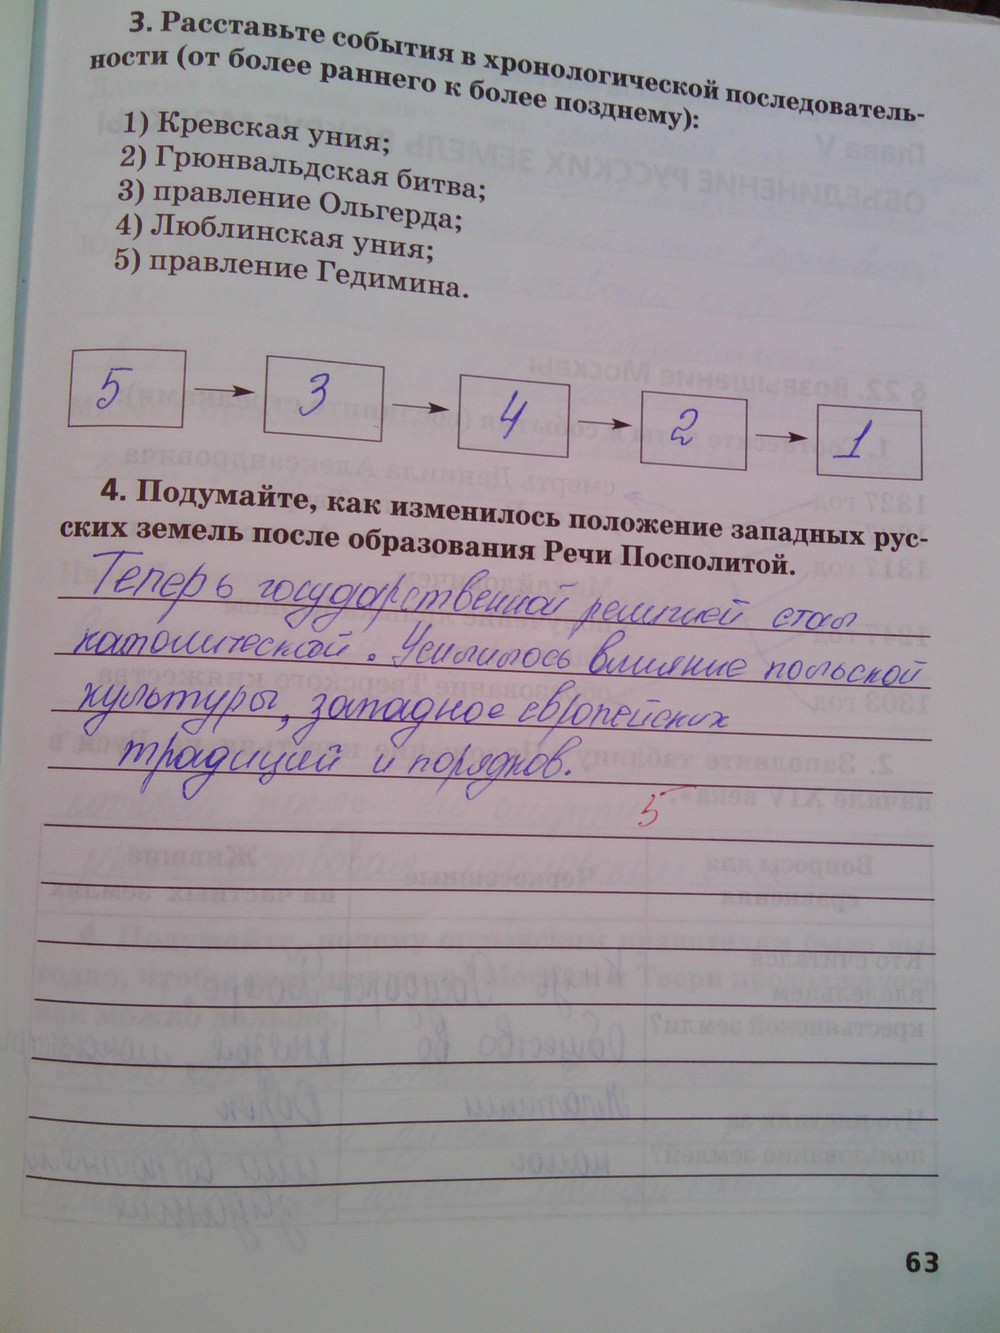 3. Расставьте события в хронологической последователь-
ности (от более раннего к более позднему):
1) Кревская уния;
2) Грюнвальдская битва;
3) правление Ольгерда;
4) Люблинская уния;
5) правление Гедимина.
5 3 4 2 1
4. Подумайте, как изменилось положение западных рус-
ских земель после образования Речи Посполитой.
Теперь государственной религией стал
католической. Усилилось влияние польской
культуры, западное европейских
традиций и порядков.
5
63